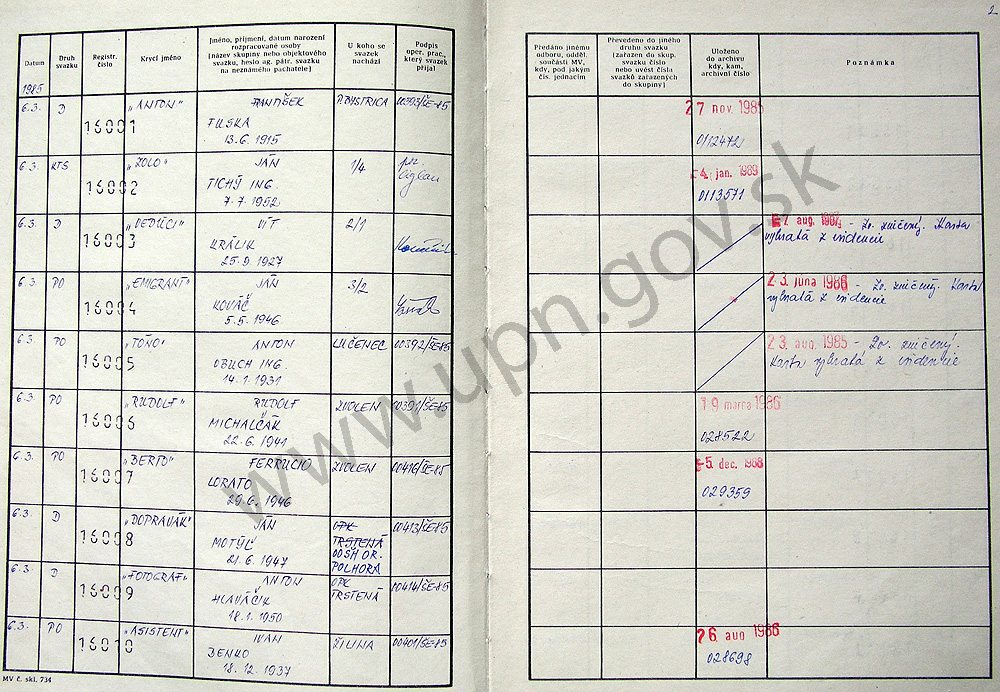 2
Datum
Druh
svazku
Registr.
číslo
Krycí jméno
Jméno, příjmení, datum narození
rozpracované osoby
(název skupiny nebo objektového
svazku, heslo ag. pátr. svazku
na neznámého pachatele)
U koho se
svazek
nachází
Podpis
oper. prac.,
který svazek
přijal
Předáno jinému
odboru, odděl.
součásti MV,
kdy, pod jakým
čís. jednacím
Převedeno do jiného
druhu svazku
(zařazen do skup.
svazku číslo
nebo uvést čísla
svazků zařazených
do skupiny)
Uloženo
do archivu
kdy, kam,
archivní číslo
Poznámka
1985
6.3. D 16001 „ANTON" FRANTIŠEK P.BYSTRICA 00393/ŠE-85 27 nov. 1985
TUSKA
13.6.1915 0/12472
6.3. KTS 16002 „ZOLO" JÁN 1/4 -4. jan. 1989
TICHÝ ING.
7.7.1952 0113571
6.3. D 16003 „DEDUCI" VÍT 2/1 aug. 1987 - Zv. zničený. Karta
KRÁLIK vybratá z evidencie
25.9.1927
6.3. PO 16004 „EMIGRANT" JÁN 3/2 23. júna 1986 - Zv. zničený. Karta
KOVÁČ vybratá z evidencie
5.5.1946
6.3. PO 16005 „TOŇO" ANTON LUČENEC 00392/ŠE-85 23. aug. 1985 - Zv. zničený.
OBUCH ING. Karta vybratá z evidencie
14.1.1931
6.3. PO 16006 „RUDOLF" RUDOLF ZVOLEN 00391/ŠE-85 19 marca 1986
MICHALČÁK
22.6.1941 028522
6.3. PO 16007 „BERTO" FERRUCIO ZVOLEN 00416/ŠE-85 -5. dec. 1988
LORATO
29.6.1946 029359
6.3. D 16008 „DOPRAVÁK" JÁN OPK 00413/ŠE-85
MOTÝĽ TRSTENÁ
21.6.1947 OOŠH OR.
POLHORA
6.3. D 16009 „FOTOGRAF" ANTON OPK 00414/ŠE-85
HLAVÁČIK TRSTENÁ
18.1.1950
6.3. PO 16010 „ASISTENT" IVAN ŽILINA 00401/ŠE-85 26 aug 1986
BENKO
18.12.1937 028698
MV č. skl. 734
www.upn.gov.sk